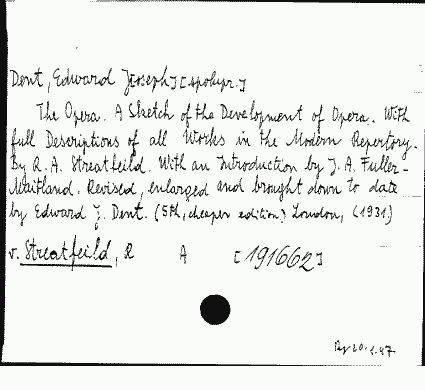 Dent, Edward J[oseph] [spolupr.]
The Opera. A Sketch of the Development of Opera. With
full Descriptions of all Works in the Modern Repertory.
By R. A. Streatfeild. With an Introduction by J. A. Fuller-
Maitland. Revised, enlarged and brought down to date
by Edward J. Dent. (5th, cheaper edition.) London, (1931)
v. Streatfeild, R A [191662]
20.1.47